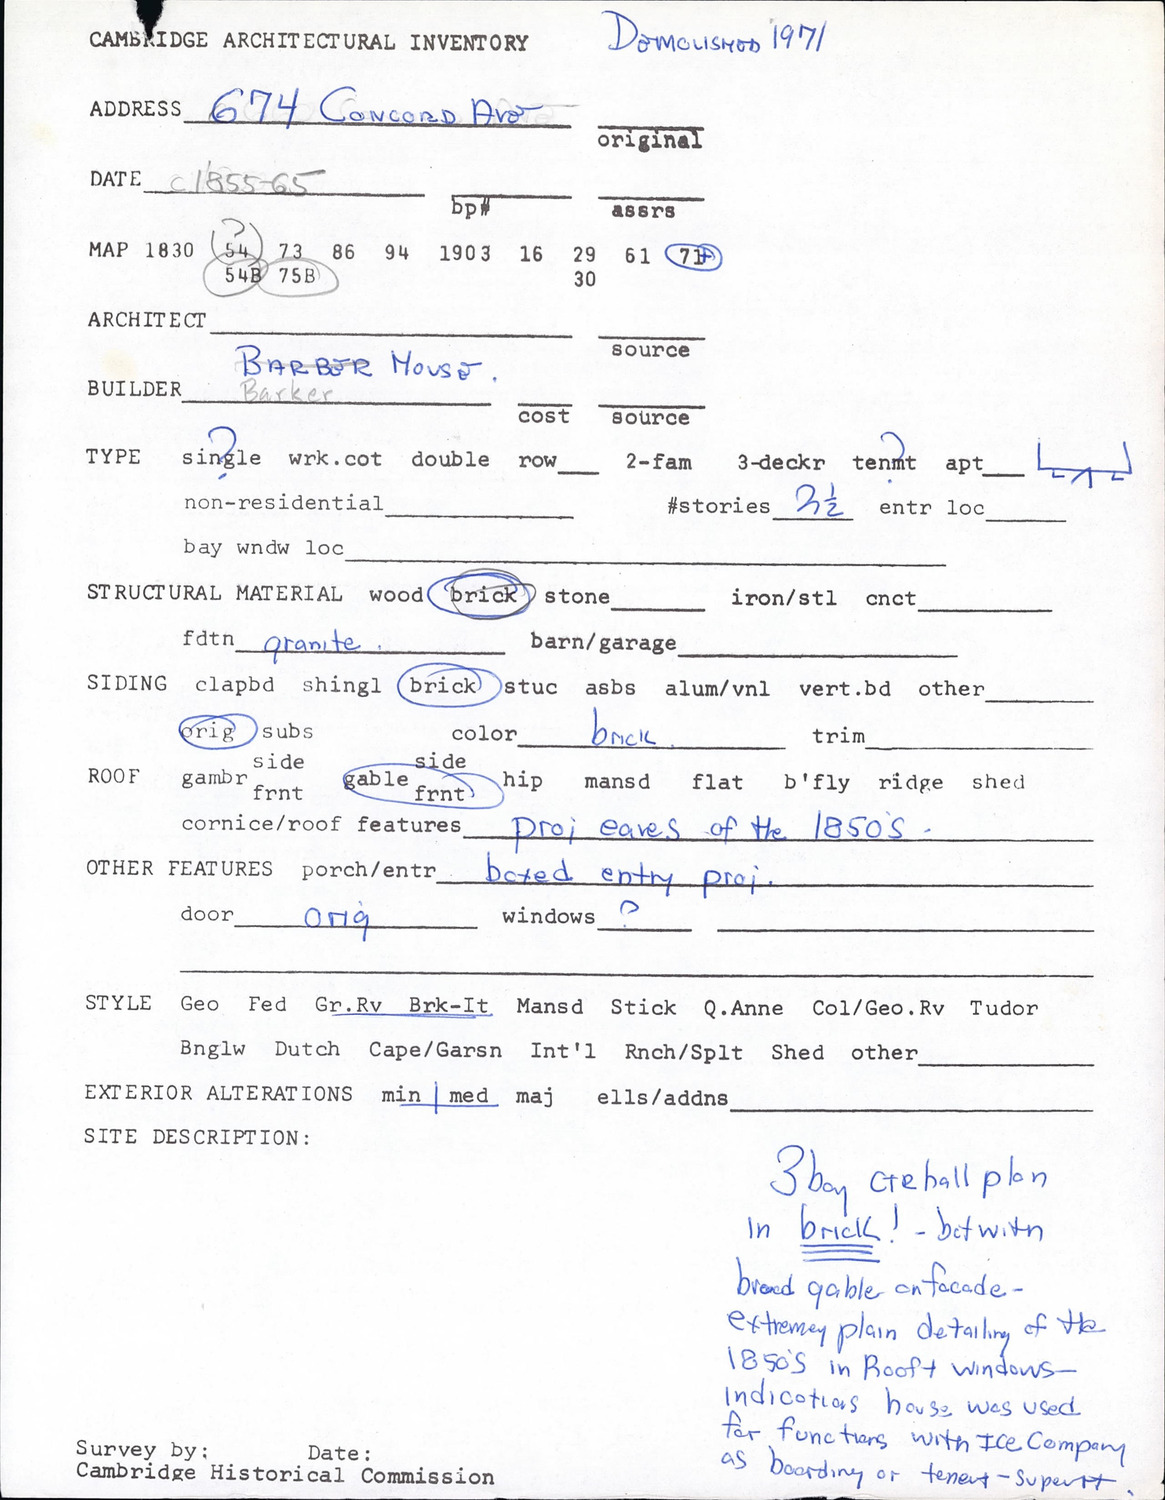 CAMBRIDGE ARCHITECTURAL INVENTORY DEMOLISHED 1971
ADDRESS 674 CONCORD AVE
original
DATE c 1855-65
bp# assrs
?
MAP 1830 54 73 86 94 1903 16 29 61 71
54B 75B 30
ARCHITECT
source
BARBER HOUSE.
BUILDER Barker
cost source
TYPE single ? wrk.cot double row 2-fam 3-deckr tenmt ? apt
non-residential #stories 2½ entr loc
bay wndw loc
STRUCTURAL MATERIAL wood brick stone iron/stl cnct
fdtn granite. barn/garage
SIDING clapbd shingl brick stuc asbs alum/vnl vert.bd other
orig subs color brick. trim
side side
ROOF gambr gable hip mansd flat b'fly ridge shed
frnt frnt
cornice/roof features proj eaves of the 1850's -
OTHER FEATURES porch/entr boxed entry proj.
door orig windows ?
STYLE Geo Fed Gr.Rv Brk-It Mansd Stick Q.Anne Col/Geo.Rv Tudor
Bnglw Dutch Cape/Garsn Int'l Rnch/Splt Shed other
EXTERIOR ALTERATIONS min | med maj ells/addns
SITE DESCRIPTION:
3 bay ctr hall plan
in brick! - but with
broad gable on facade -
extremey plain detailing of the
1850's in Roof + windows -
indications house was used
for functions with ICE Company
as boarding or
Survey by: Date:
Cambridge Historical Commission